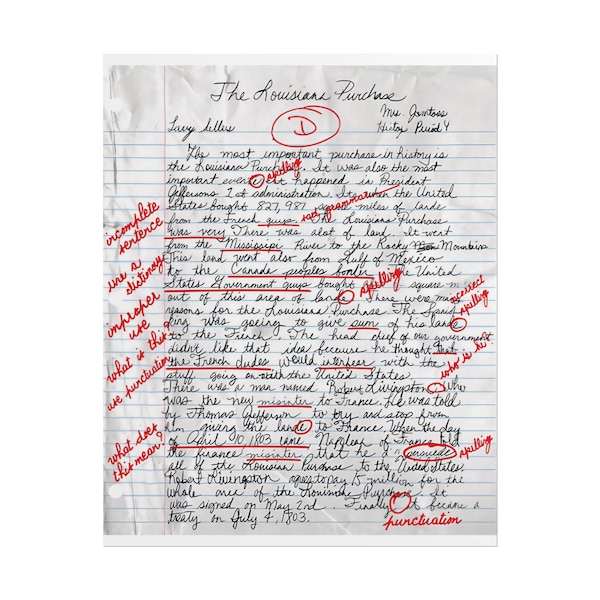 The Louisiana Purchase
Mrs.
D
Larry Sellers
Period 4
The most important purchase in history is
the Louisiana Purchase. It was also the most
spelling
important evente it happened in President
Jeffersons 1st administration. It when the United
States bought 827,987 square miles of lande
bad grammar
from the French guys. The Louisiana Purchase
was very There was alot of land. It went
incomplete
sentence
from the Mississippi River to the Rocky Mountains
This land went also from Gulf of Mexico
use a
dictionary
to the Canada peoples border The United
States Government guys bought square m
spelling
improper
use
out of this area of lande There were
reasons for the Louisiana Purchase. The Spanish
spelling
King was going to give sum of his lande
to the French. The head chief of our government
what is this?
didn't like that idea because he thought that
who is he?
the French dudes would interfeer with the
use punctuation
stuff going on with the United States.
There was a man named Robert Livingston, who
was the new misinter to France. He was told
by Thomas Jefferson to try and stop from
him giving the lande to France. When the day
of April 10, 1803 came Napolean of France told
what does
this mean?
spelling
the finance misinter that he
all of the Louisian Purchase to the United States.
Robert Livingston agres to pay 15 million for the
whole area of the Louisiana Purchase. It
was signed on May 2nd. Finally it became a
treaty on July 4, 1803.
punctuation